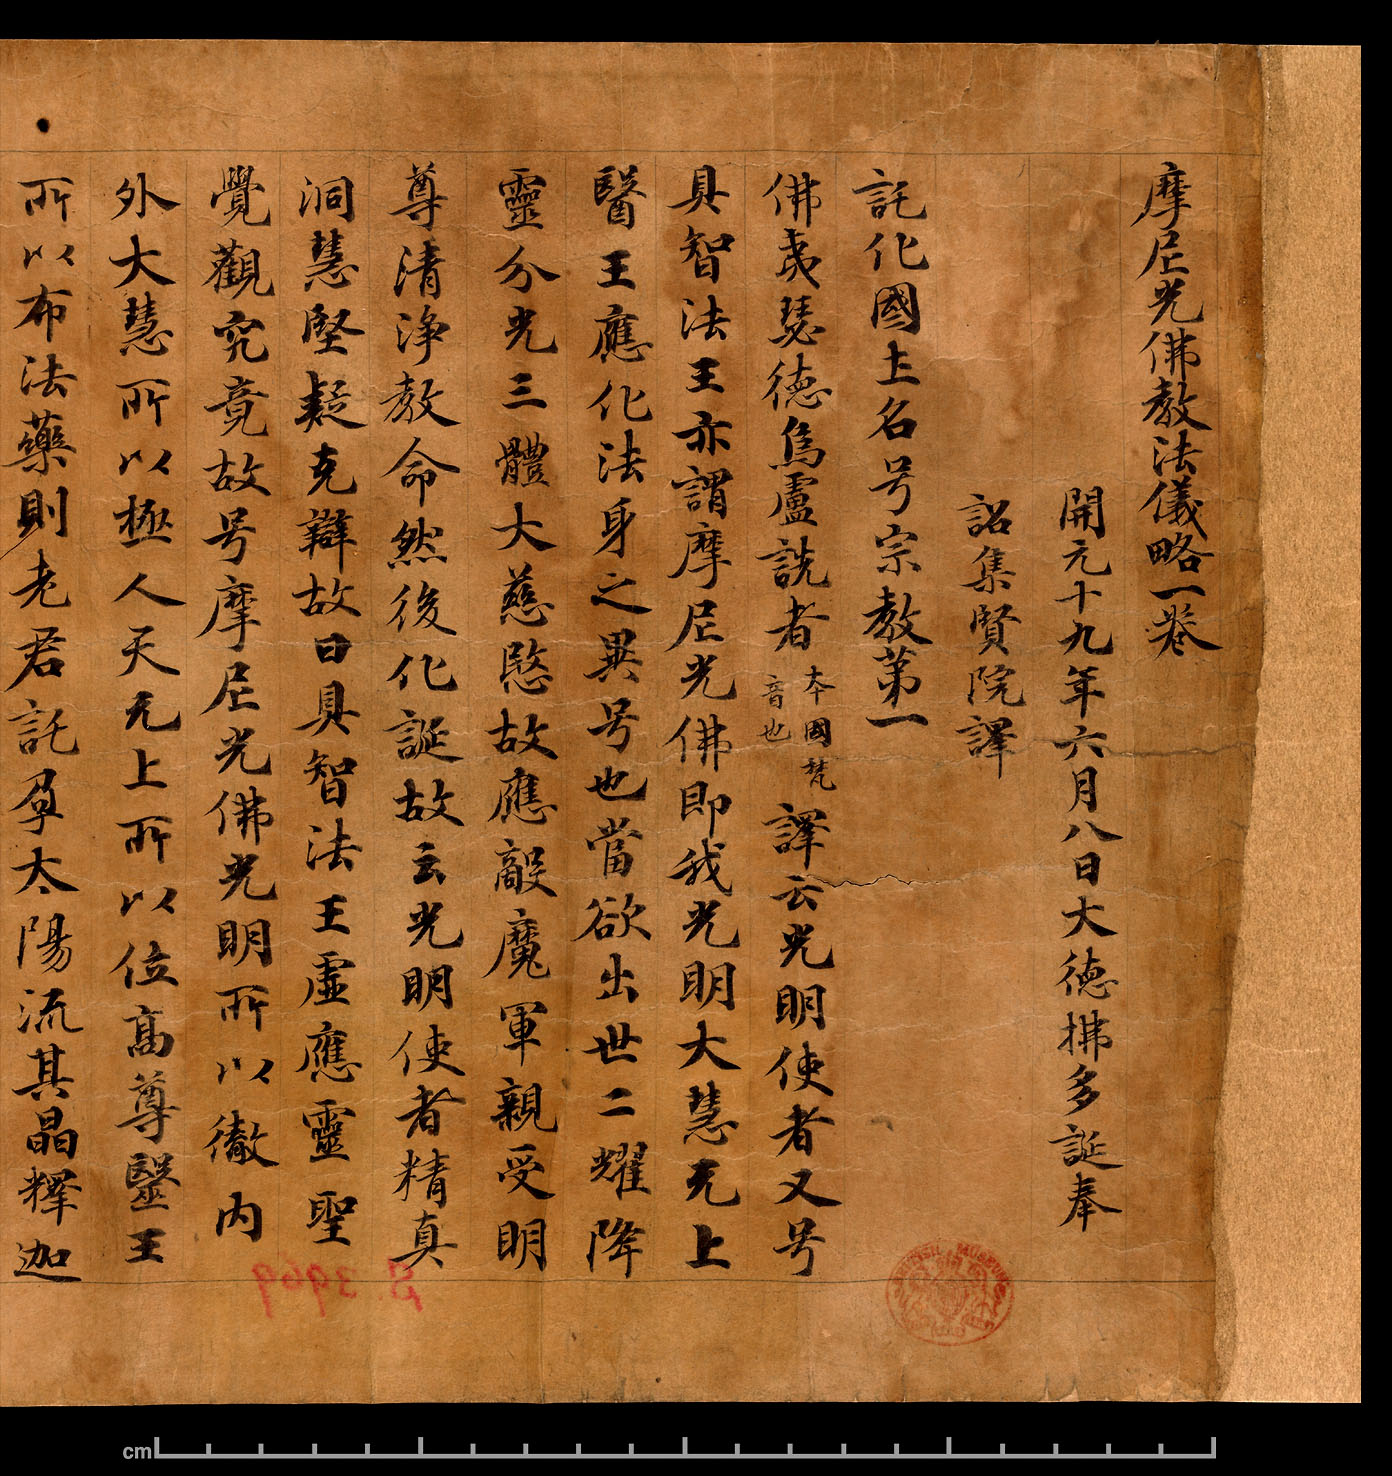 摩尼光佛教法儀略一卷
開元十九年六月八日大德拂多誕奉
詔集賢院譯
託化國土名号宗教第一
佛夷瑟德烏盧詵者本國梵音也譯云光明使者又号
具智法王亦謂摩尼光佛即我光明大慧无上
醫王應化法身之異号也當欲出世二耀降
靈分光三體大慈愍故應敵魔軍親受明
尊清淨教命然後化誕故云光明使者精真
洞慧堅疑克辯故曰具智法王虛應靈聖
覺觀究竟故号摩尼光佛光明所以徹內
外大慧所以極人天无上所以位高尊毉王
所以布法藥則老君託孕太陽流其晶釋迦
S.3969
BRITISH MUSEUM
cm